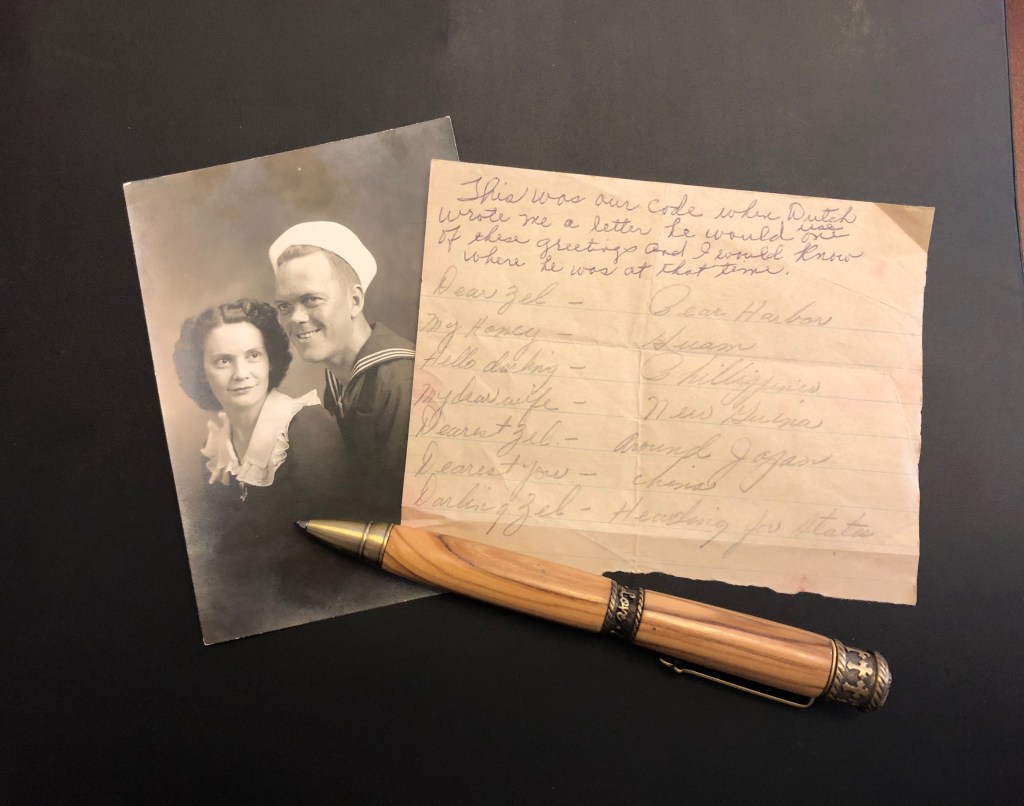 This was our code when Dutch
wrote me a letter he would use one
of these greetings and I would know
where he was at that time.
Dear Zel - Pearl Harbor
My Honey - Guam
Hello darling - Phillippines
My dear wife - New Guina
Dearest Zel - Around Japan
Dearest You - China
Darling Zel - Heading for States
Love